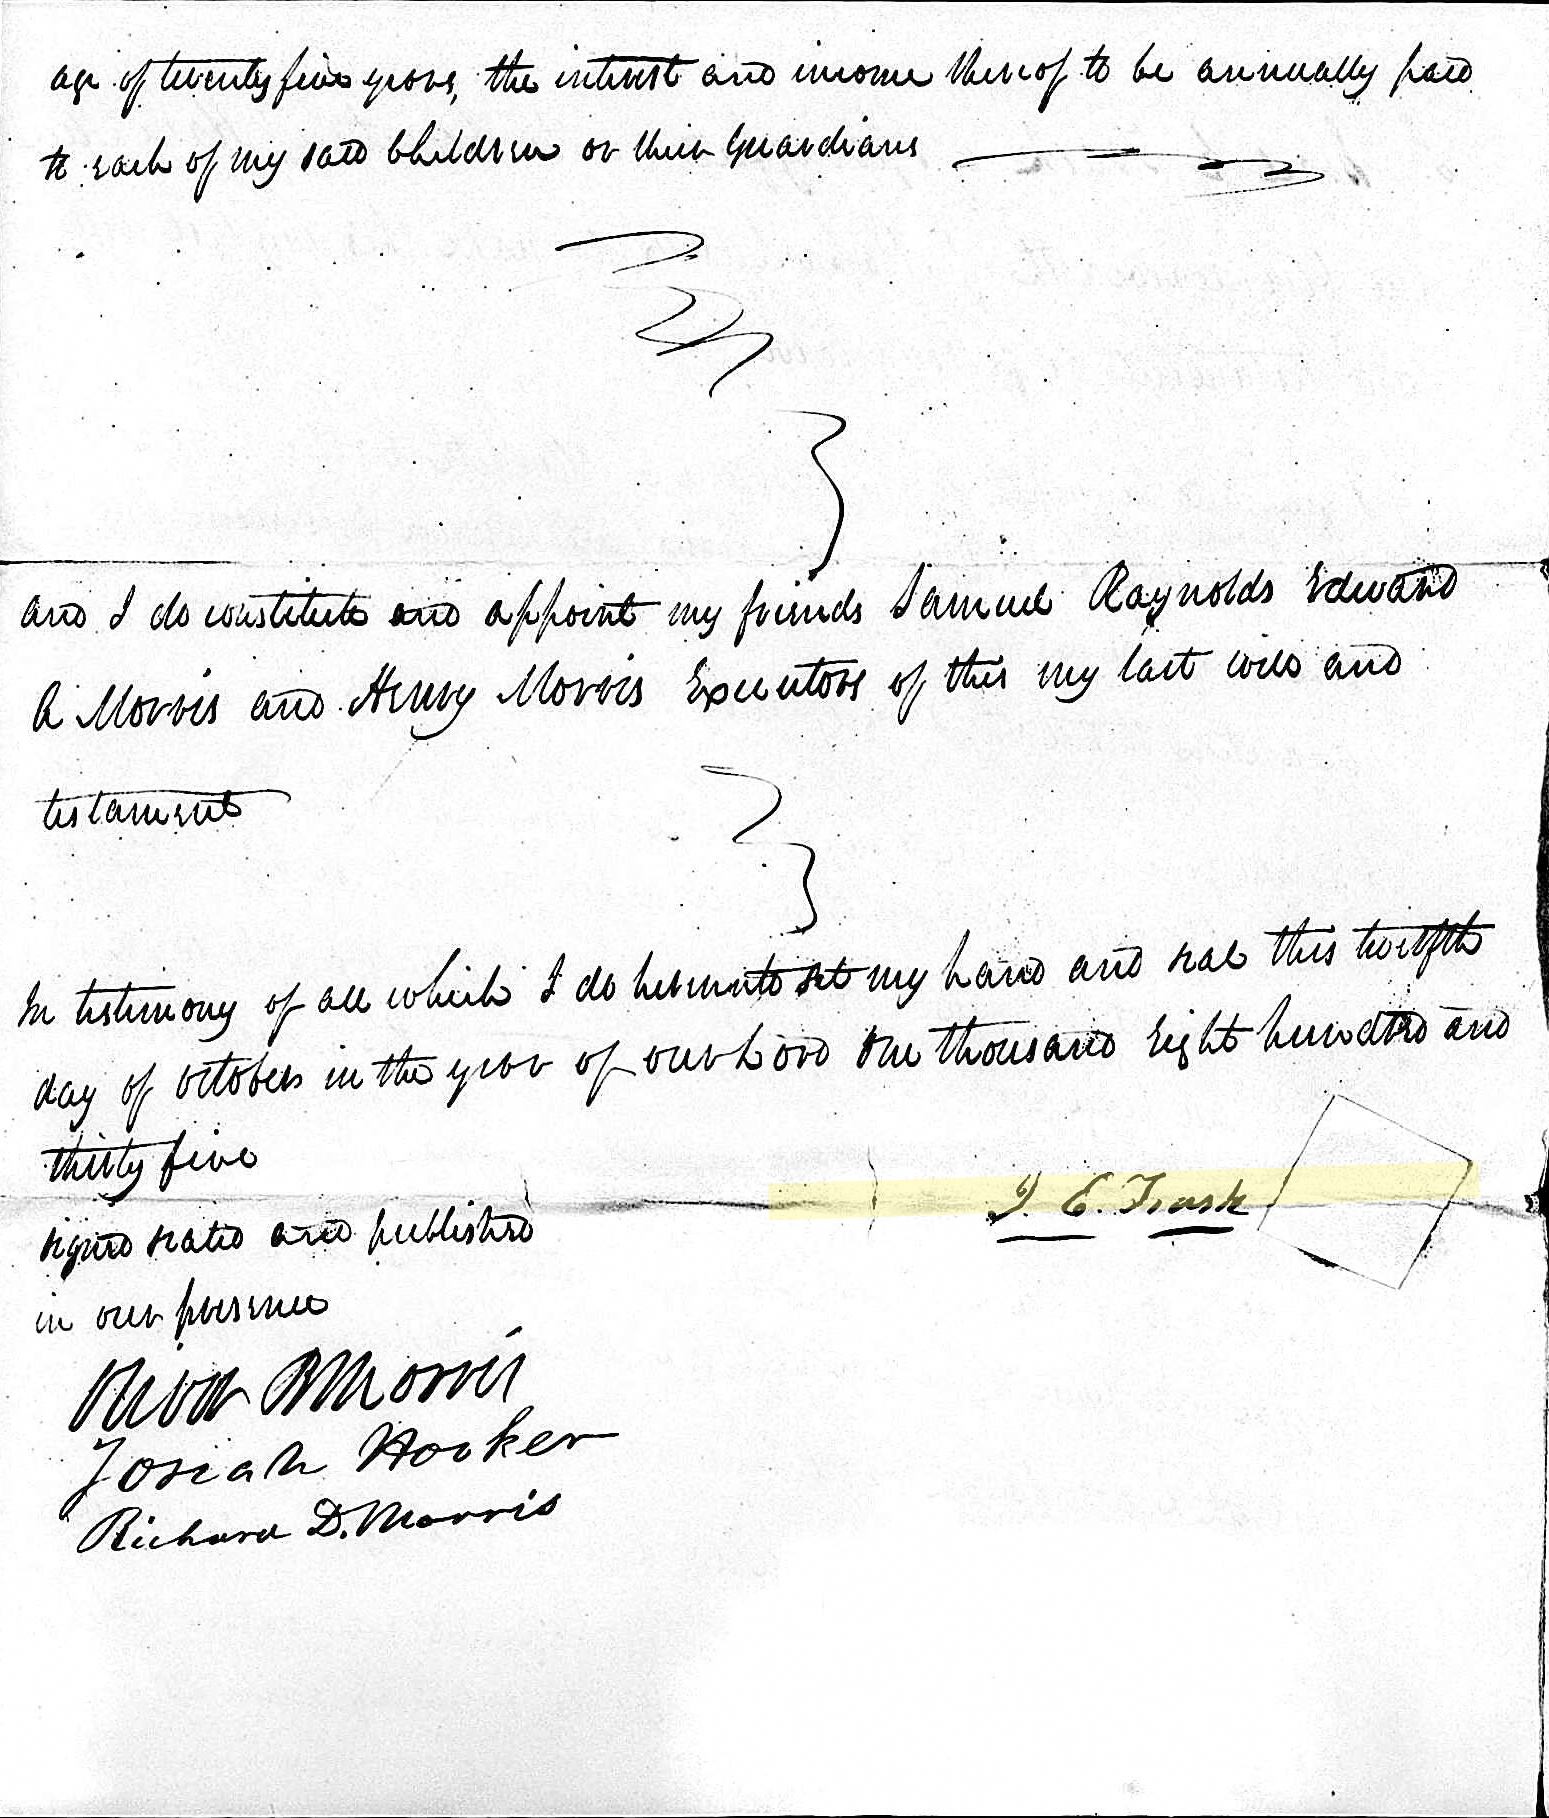 age of twenty five years, the interest and income thereof to be annually paid
to each of my said Children or their Guardians
and I do constitute and appoint my friends Samuel Raynolds Edward
A Morris and Henry Morris Executors of this my last will and
testament
In testimony of all which I do hereunto set my hand and seal this twelfth
day of October in the year of our Lord One thousand Eight hundred and
thirty five
signed sealed and published
in our presence
I. E. Trask
Oliver B Morris
Josiah Hooker
Richard D. Morris